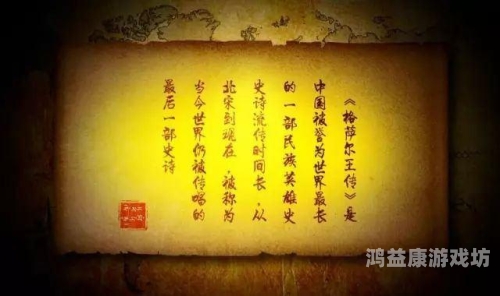 《格萨尔王传》是
中国被誉为世界最长
的一部民族英雄史
史诗流传时间长，从
北宋到现在，被称为
当今世界仍被传唱的
最后一部史诗
鸿益康游戏坊